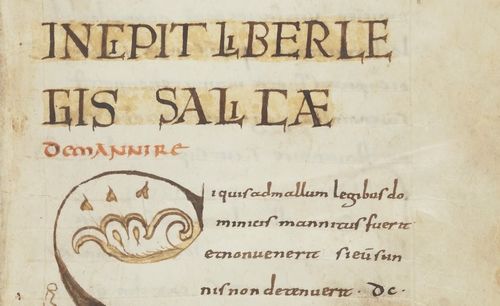 INCIPIT LIBER LE
GIS SALICÆ
DE MANNIRE
Si quis ad mallum legibus do
minicis mannitus fuerit
et non uenerit si eū sun
nis non detenuerit · DC ·